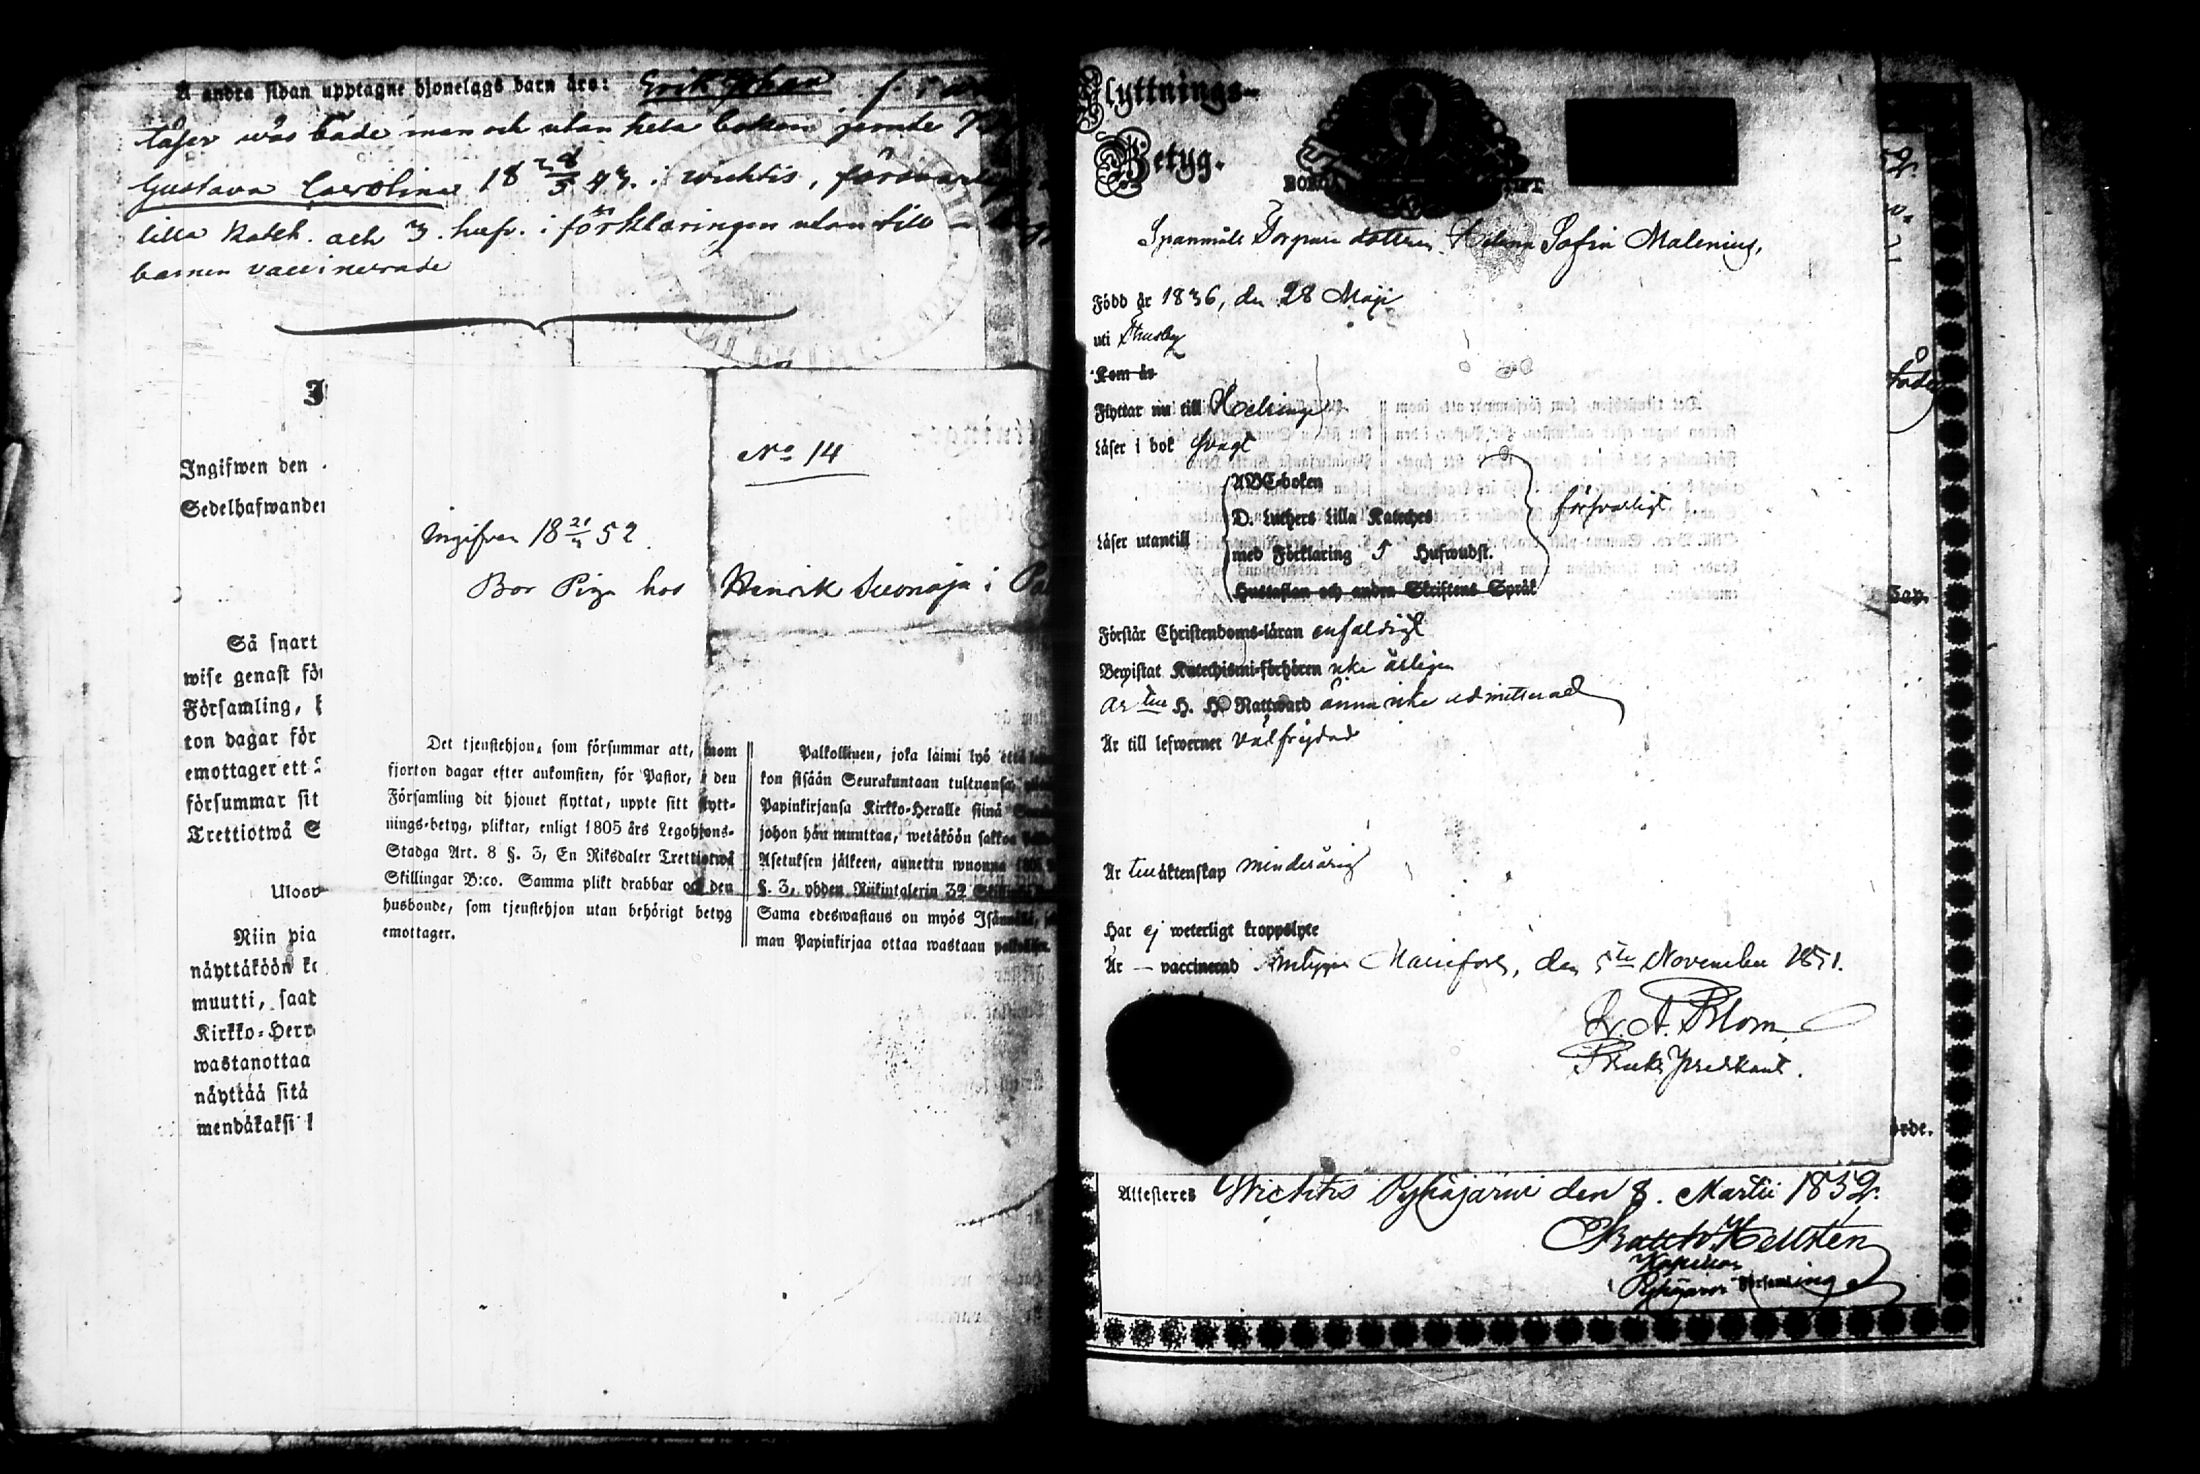 Å andra sidan upptagne hjonelags barn äro: Erik Johan f. i
läser wäl både innan och utan hela boken jemte
Gustava Carolina 18 8/5 43. i wichtis, försvarligt
lilla Katek. och 3. huf. i förklaringen utan till
barnen vaccinerade
Ingifwen den
Sedelhafwanden
Så snart
wise genast för
Församling,
ton dagar för
emottager ett
försummar sit
Trettiotwå S
Ulosw
Niin pia
näyttäköön
muutti, saat
Kirkko-Herr
wastanottaa
näyttää sitä
mendäkaksi
No 14
Ingifven 18 21/4 52.
Bor Piga hos Henrik Suonoja i
Det tjenstehjon, som försummar att, inom
fjorton dagar efter ankomsten, för Pastor, i den
Församling dit hjonet flyttat, uppte sitt flytt-
nings-betyg, pliktar, enligt 1805 års Legohjons-
Stadga Art. 8 §. 3, En Riksdaler Trettiotwå
Skillingar B:co. Samma plikt drabbar ock den
husbonde, som tjenstehjon utan behörigt betyg
emottager.
Palkollinen, joka laimi lyö että
kon sisään Seurakuntaan tultuansa,
Papinkirjansa Kirkko-Heralle siinä
johon hän muuttaa, wetäköön sakkoa
Asetuksen jälkeen, annettu wuonna
§. 3, yhden Riikintalerin 32 Skillinkiä
Sama edeswastaus on myös Isännällä,
man Papinkirjaa ottaa wastaan palkollisen.
Flyttnings-
Betyg.
Spanmåls Torpare dottern Helena Sofia Malenius,
Född år 1836, den 28 Maji
uti Thusby
Kom år
Flyttar nu till Helsinge
Läser i bok svagt
Läser utantill
ABC-boken
D. Luthers Lilla Kateches
med Förklaring 5 Hufwudst.
Hustaflan och andra Skriftens Språk
försvarligt
Förstår Christendoms-läran enfaldigt
Bewistat Katechismi-förhören icke årligen
är till H. H. Nattward ännu icke admitterad
Är till lefwernet välfrejdad
Är till äktenskap minderårig
Har ej weterligt kroppslyte
Är — vaccinerad. intygar Mariefors, den 5te November 1851.
A. Blom,
Bruks Predikant.
Cap.
orde.
Attesteres Wichtis Pyhäjärvi den 8. Martii 1852.
Hellsten
Kapellan
Pyhäjärvi Församling